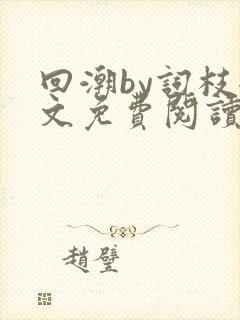 回潮by詞枝
文免費閱讀
趙璧